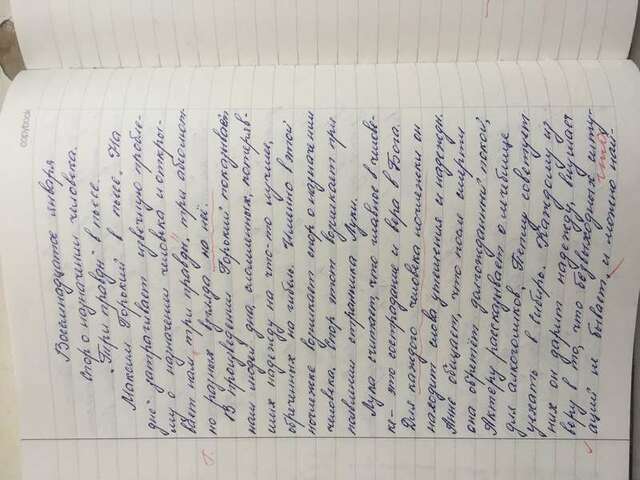 copybook
Восемнадцатое января
Спор о назначении человека.
"Три правды" в пьесе.
Максим Горький в пьесе „На
дне" затрагивает извечную пробле-
му о назначении человека и откры-
вает нам „три правды", три абсолют-
но разных взгляда на неё.
В произведении Горький показывает
нам людей дна, озлобленных, потеряв-
ших надежду на что-то лучшее,
обреченных на гибель. Именно в этой
ночлежке возникает спор о назначении
человека. Спор этот возникает при
появлении странника Луки.
Лука считает, что главное в челове-
ке - это сострадание и вера в Бога.
Для каждого человека ночлежки он
находит слова утешения и надежды.
Анне обещает, что после смерти
она обретёт долгожданный покой,
Актёру рассказывает о лечебнице
для алкоголиков, Пеплу советует
уехать в Сибирь. Каждому из
них он дарит надежду, внушает
веру в то, что безвыходных ситу-
аций не бывает, и можно най-
Г.